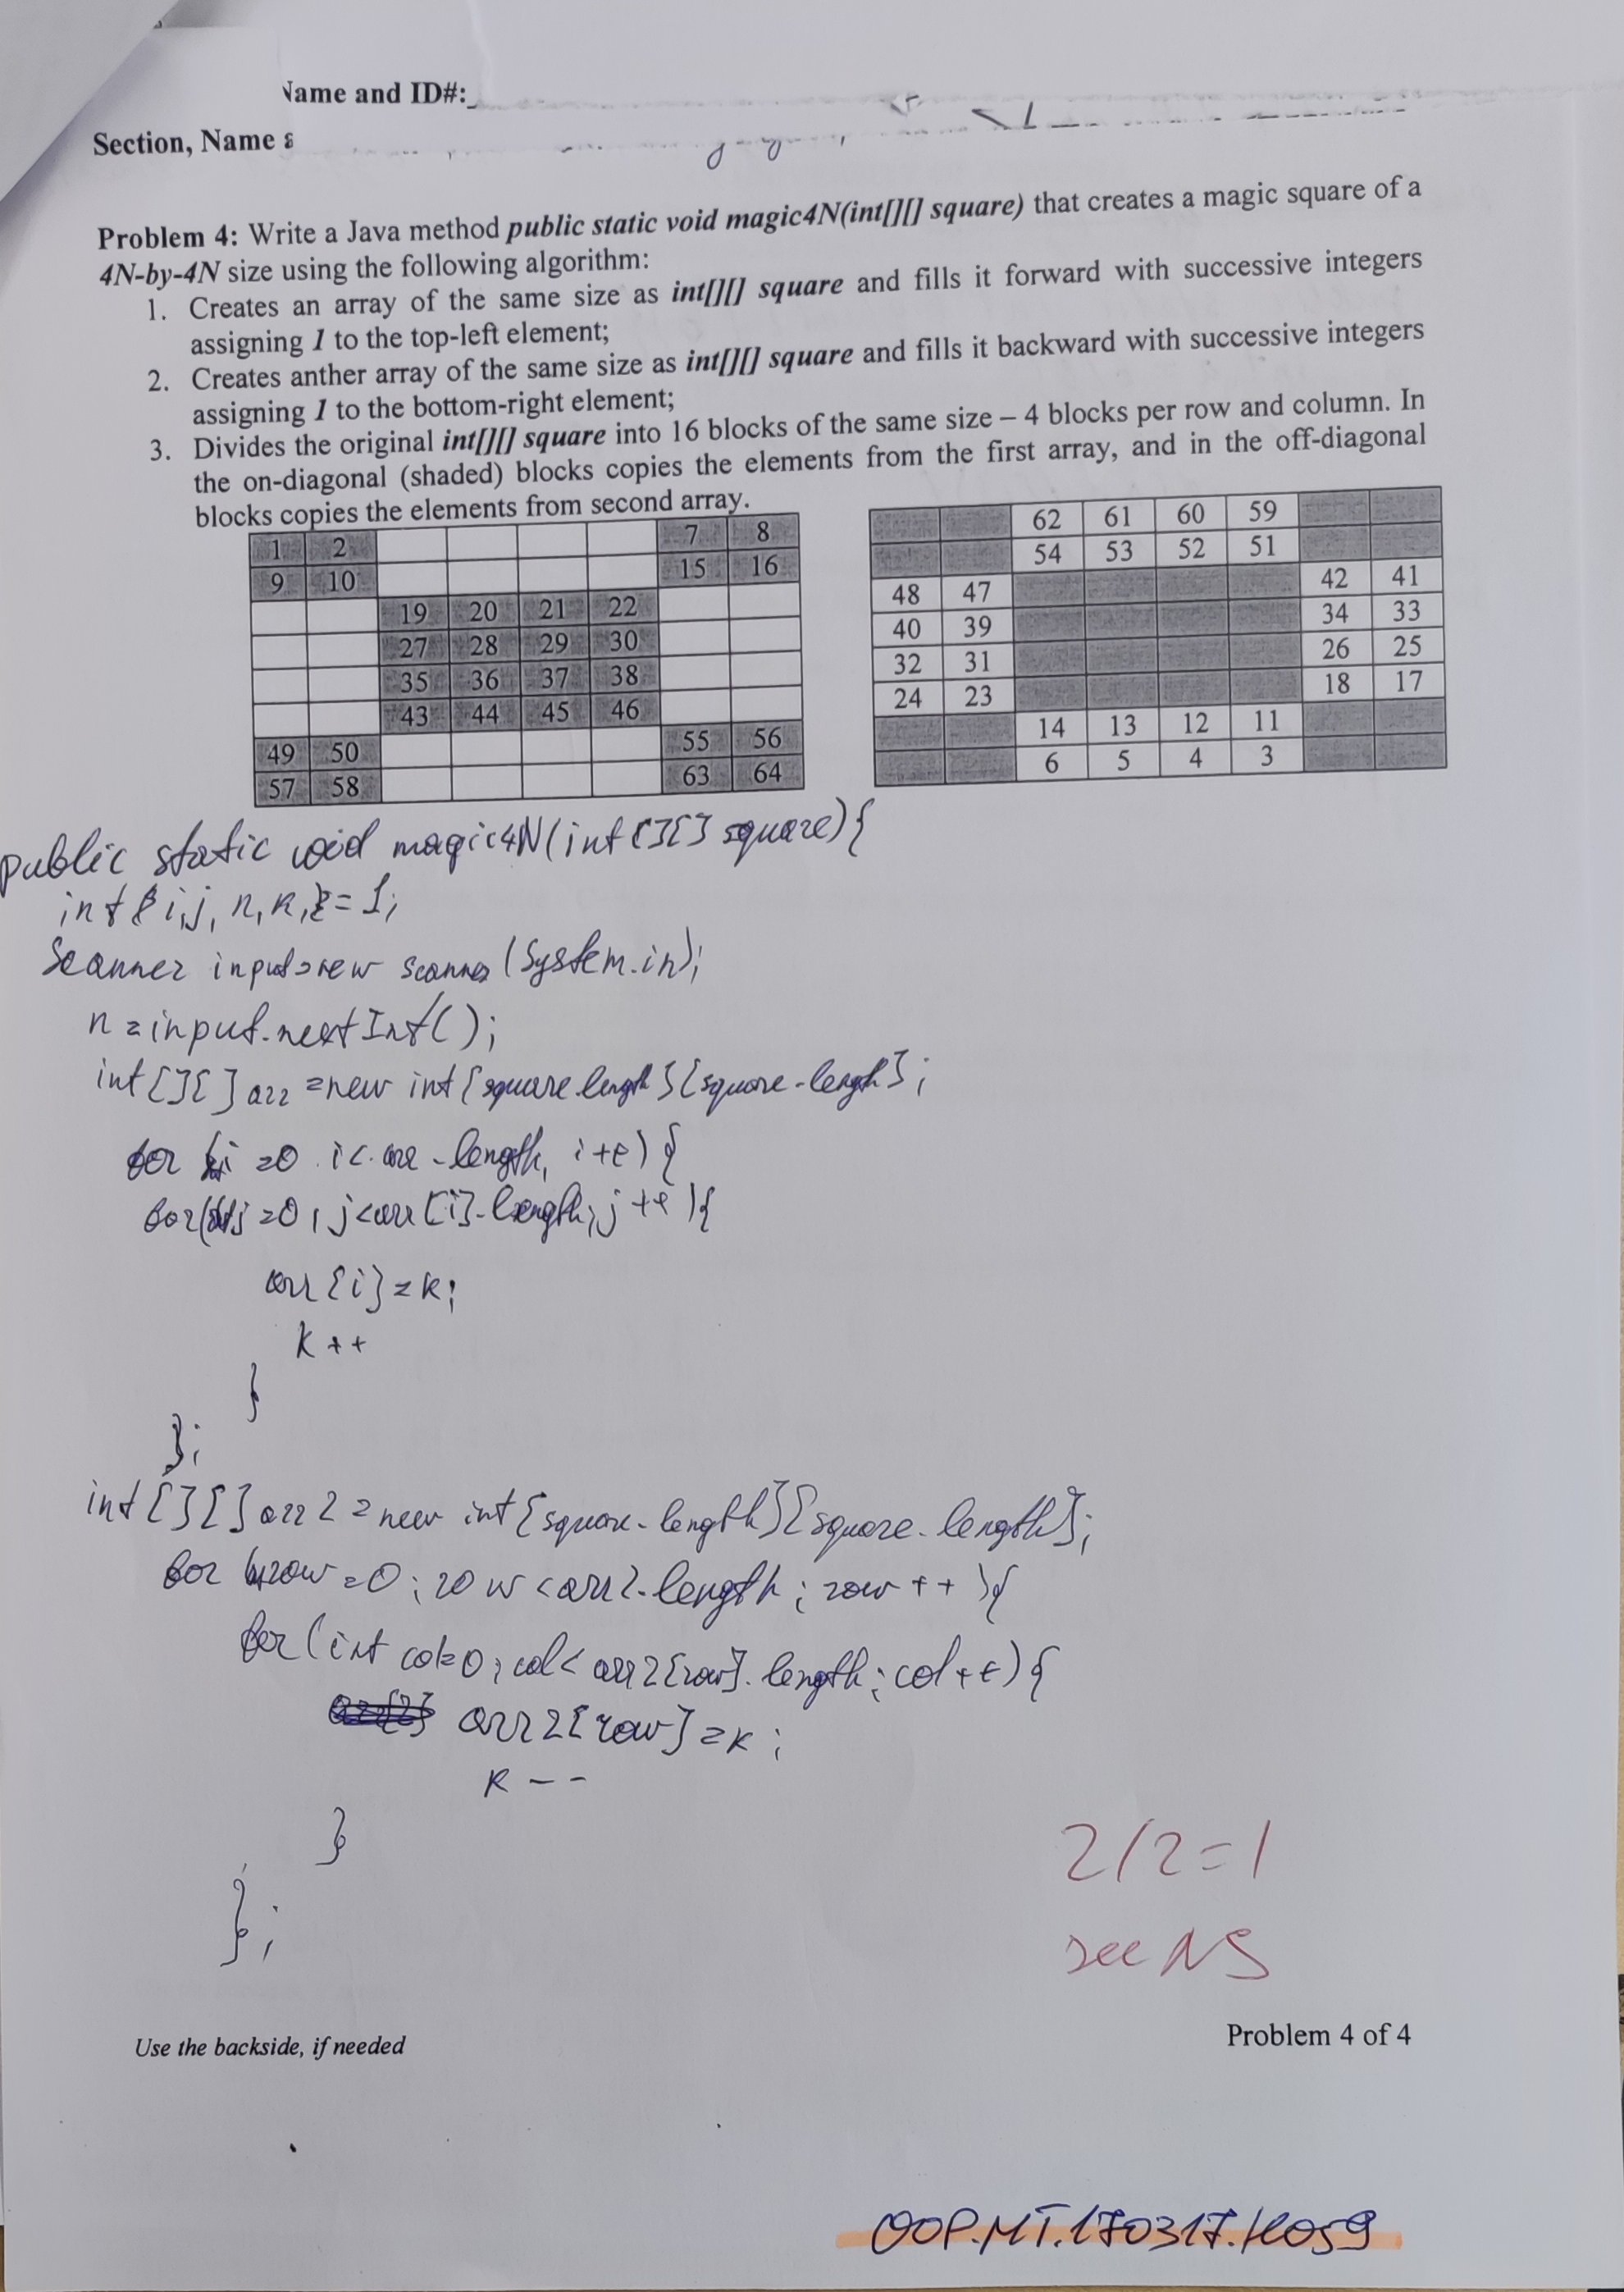 Name and ID#:
Section, Name &
Problem 4: Write a Java method public static void magic4N(int[][] square) that creates a magic square of a
4N-by-4N size using the following algorithm:
1. Creates an array of the same size as int[][] square and fills it forward with successive integers
assigning 1 to the top-left element;
2. Creates anther array of the same size as int[][] square and fills it backward with successive integers
assigning 1 to the bottom-right element;
3. Divides the original int[][] square into 16 blocks of the same size – 4 blocks per row and column. In
the on-diagonal (shaded) blocks copies the elements from the first array, and in the off-diagonal
blocks copies the elements from second array.
1 2 7 8
9 10 15 16
19 20 21 22
27 28 29 30
35 36 37 38
43 44 45 46
49 50 55 56
57 58 63 64
62 61 60 59
54 53 52 51
48 47 42 41
40 39 34 33
32 31 26 25
24 23 18 17
14 13 12 11
6 5 4 3
public static void magic4N(int[][] square){
int i,j, n, k, = 1;
Scanner input=new scanner (System.in);
n = input.nextInt();
int[][] arr = new int[square.length][square.lengh];
for (i =0 i< arr.length, i++) {
for(j =0; j<arr[i].length; j++){
arr[i] = k;
k++
}
};
int[][] arr2 = new int[square.length][square.length];
for row =0; row <arr2.length; row ++ ){
for (int col=0; col< arr2[row].length; col++) {
arr2[row] = k;
k --
}
};
2/2=1
see NS
Use the backside, if needed
Problem 4 of 4
OOP.MT.170317.K059